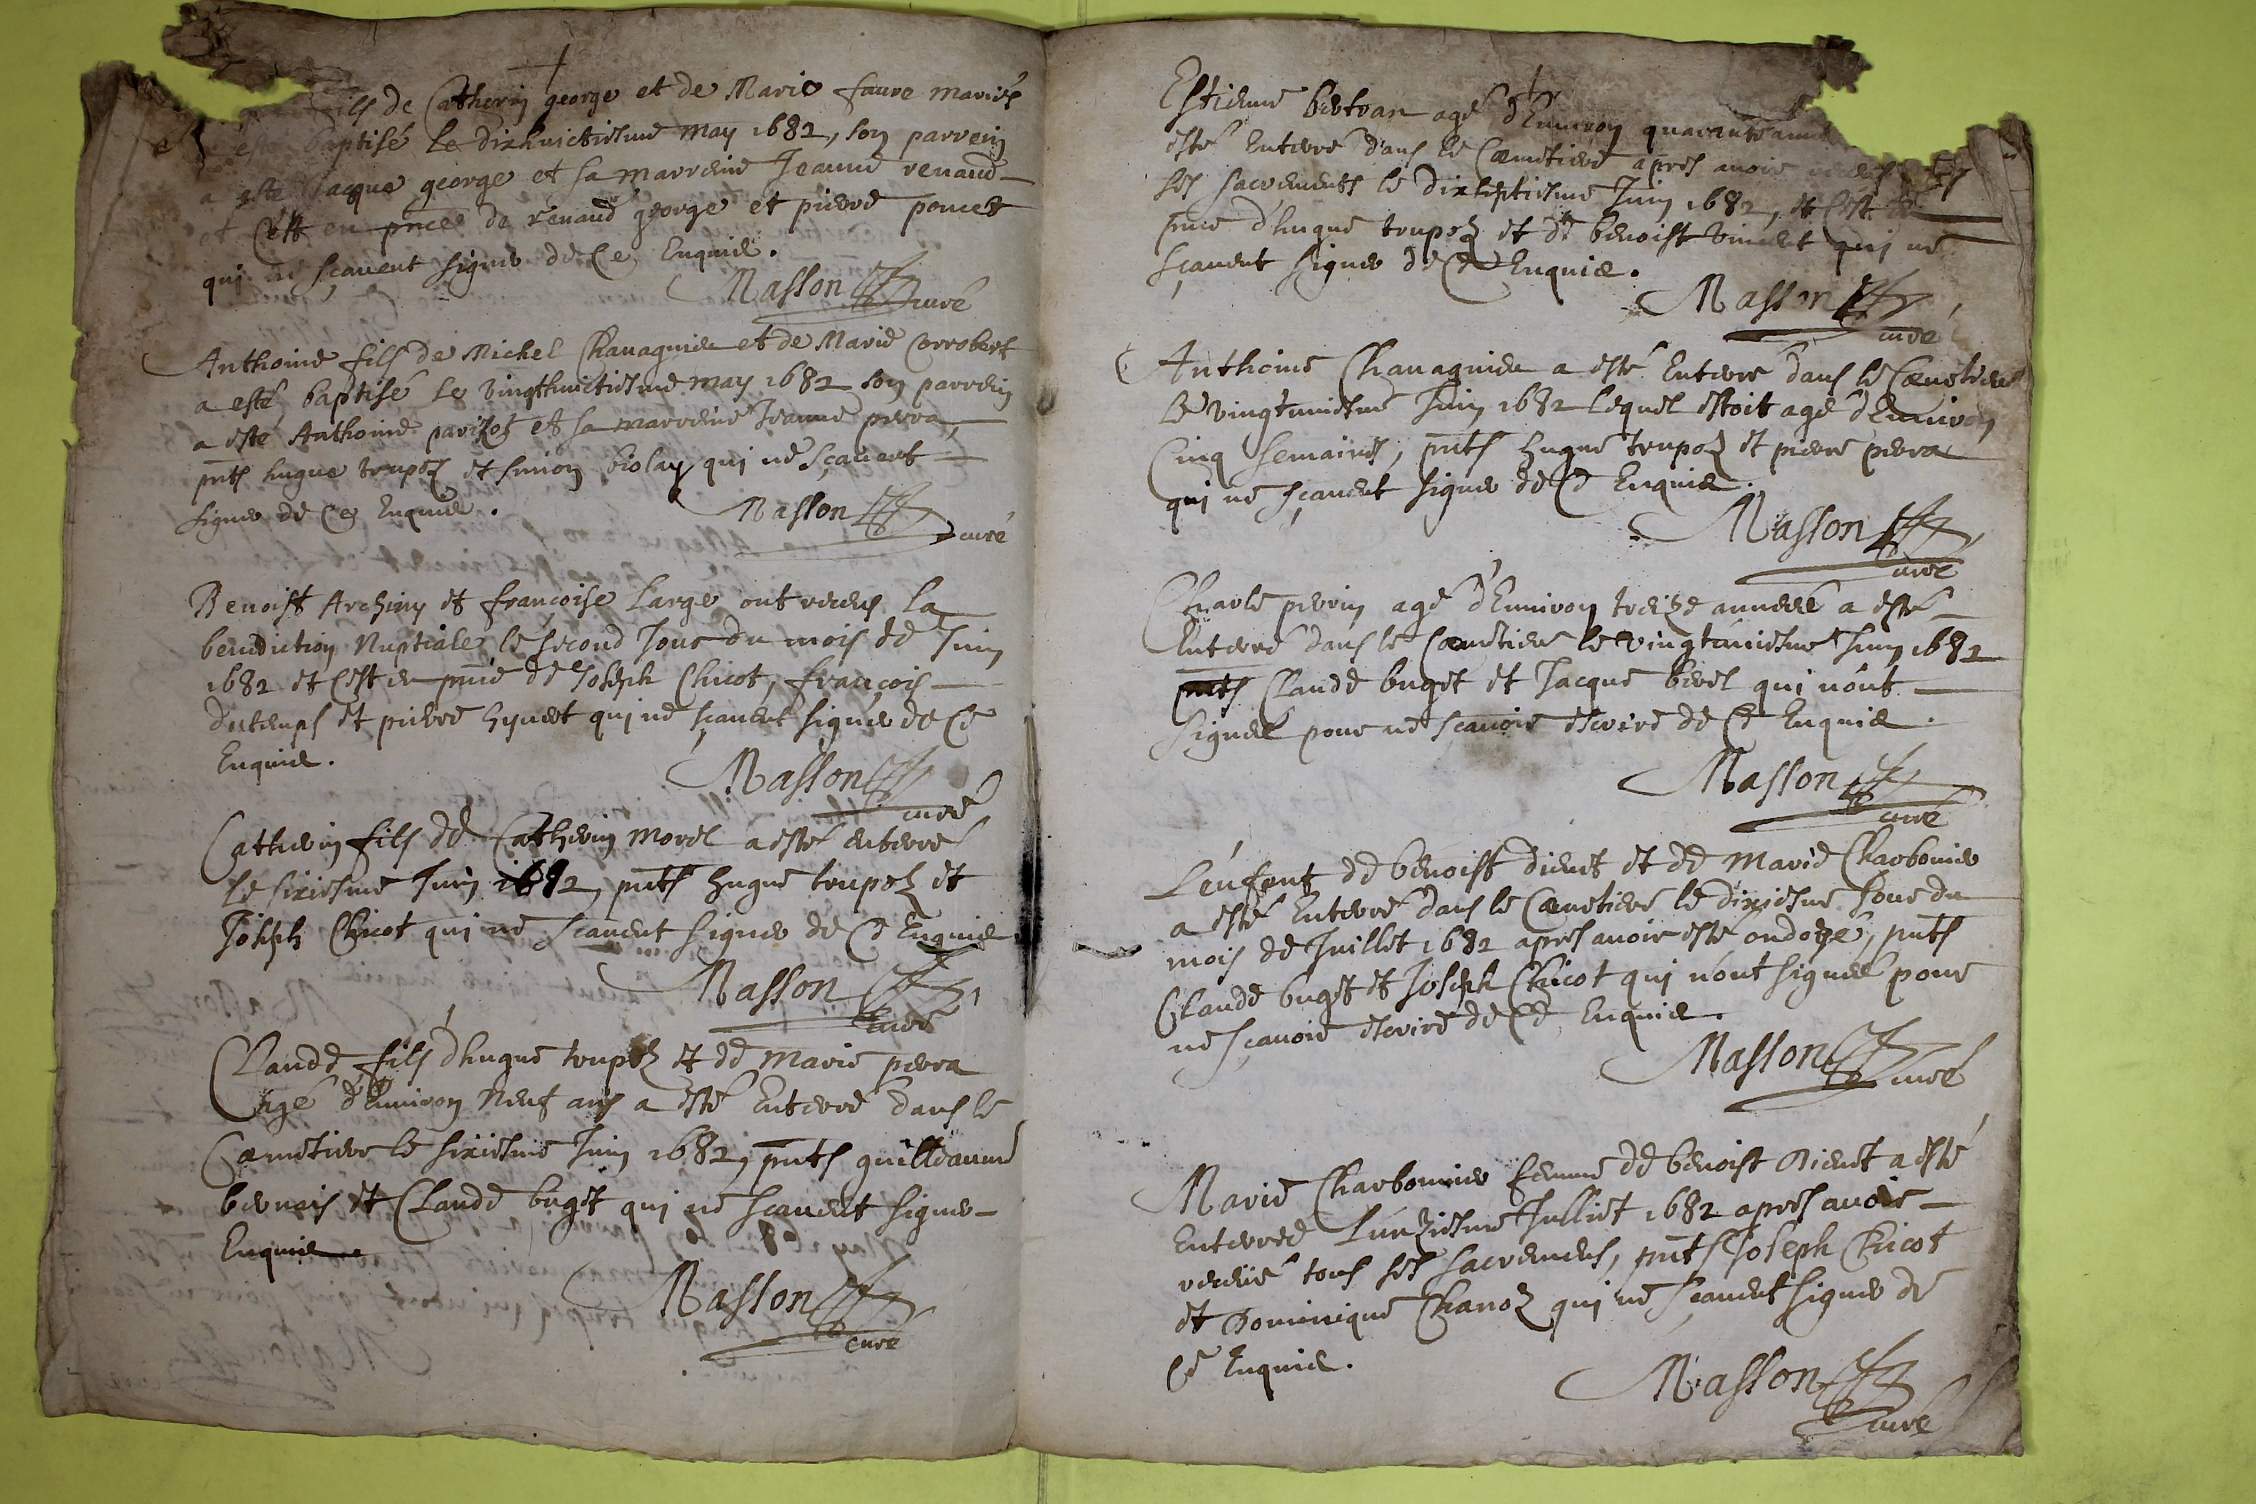 fils de Catherin george et de Marie faure mariés
esté baptisé le dixhuictiesme may 1682, son parrein
a esté Jacque george et sa marreine Jeanne renaud
et c'est en pnce de renaud george et pierre poncet
qui ne sçavent signer de ce Enquis.
Masson curé
Anthoine fils de Michel Chanagnieu et de Marie Corrobert
a esté baptisé le vingthuictiesme may 1682 son parrein
a esté Anthoine parizot et sa marreine Jeanne perra,
pnts hugue trupoz et simon biolay qui ne sçavent
signer de ce Enquis.
Masson curé
Benoist Archiny et françoise Large ont receus la
benediction Nuptiale le second Jour du mois de Juin
1682 et c'est en pnce de Joseph Chicot, françois
dutemps et pierre hyvert qui ne sçavent signer de ce
Enquis.
Masson curé
Catherin fils de Catherin Morel a esté enterré
le sixiesme Juin 1682, pnts hugue trupoz et
Joseph Chicot qui ne sçavent signer de ce Enquis
Masson curé
Claude fils d'hugue trupoz et de Marie perra
agé d'Environ Neuf ans a esté Enterré dans le
Cæmetiere le sixiesme Juin 1682, pnts guilleaume
bernois et Claude buget qui ne sçavent signer
Enquis.
Masson
curé
Estienne bertran agé d'Environ quarante
esté Enterré dans le Cæmetiere apres avoir
ses sacrements le dixseptiesme Juin 1682, et c'est
pnce d'hugue trupoz et de benoist vincent qui ne
sçavent signer de ce Enquis.
Masson
curé
Anthoine Chanagnieu a esté Enterré dans le Cæmetiere
le vingtuniesme Juin 1682 lequel estoit agé d'Environ
Cinq semaines, pnts hugue trupoz et pierre perra
qui ne sçavent signer de ce Enquis.
Masson
curé
Charle perrin agé d'Environ treize années a esté
Enterré dans le Cæmetiere le vingtuniesme Juin 1682
pnts Claude buget et Jacque berel qui n'ont
signés pour ne sçavoir escrire de ce Enquis.
Masson
curé
L'enfant de benoist dient et de Marie Charbonier
a esté Enterré dans le Cæmetiere le dixiesme Jour du
mois de Juillet 1682 apres avoir esté ondozé, pnts
Claude buget et Joseph Chicot qui n'ont signés pour
ne sçavoir escrire de ce Enquis.
Masson curé
Marie Charbonier femme de benoist Dient a esté
Enterrée L'unziesme Julliet 1682 apres avoir
receue tous ses sacremens, pnts Joseph Chicot
et Dominique Chanoz qui ne sçavent signer de
ce Enquis.
Masson
curé